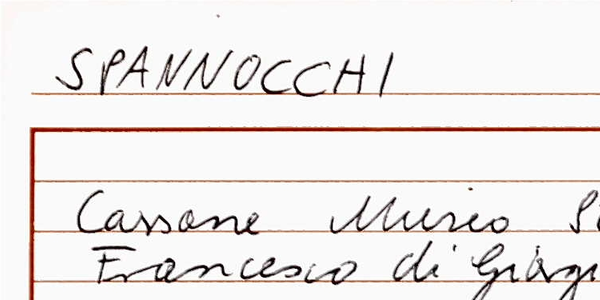 SPANNOCCHI
Cassone Museo
Francesco di